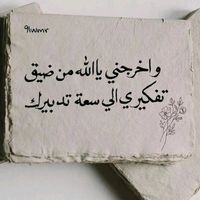 واخرجني ياالله من ضيق
تفكيري الي سعة تدبيرك